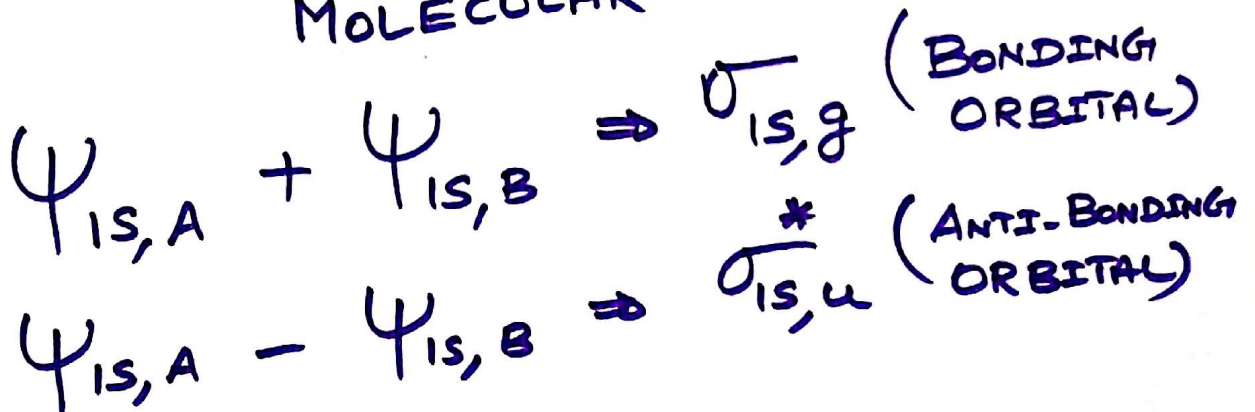 MOLECULAR
ψ1S,A + ψ1S,B ⇒ σ1S,g (BONDING ORBITAL)
ψ1S,A − ψ1S,B ⇒ σ*1S,u (ANTI-BONDING ORBITAL)